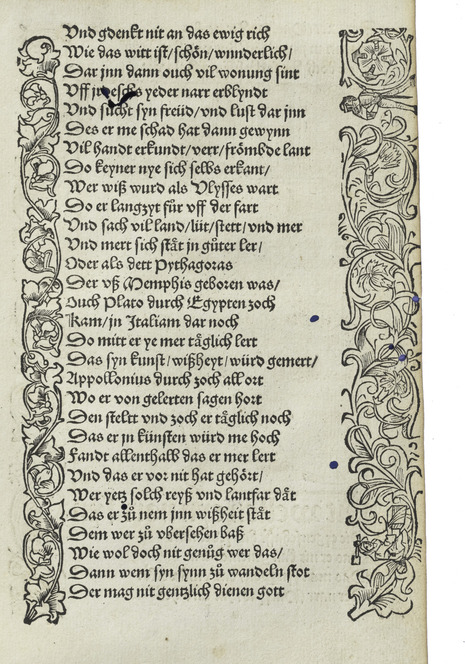 Vnd gdenkt nit an das ewig rich
Wie das witt ist/schön/wunderlich/
Dar jnn dann ouch vil wonung sint
Vff yeder narr erblyndt
Vnd sücht syn freüd/vnd lust dar jnn
Des er me schad hat dann gewynn
Vil handt erkundt/verr/frömbde lant
Do keyner nye sich selbs erkant/
Wer wiß wurd als Vlysses wart
Do er langzyt für vff der fart
Vnd sach vil land/lüt/stett/vnd mer
Vnd mert sich stät jn güter ler/
Oder als dett Pythagoras
Der vß Memphis geboren was/
Ouch Plato durch Egypten zoch
Kam/jn Italiam dar noch
Do mitt er ye mer täglich lert
Das syn kunst/wißheyt/würd gemert/
Appollonius durch zoch all ort
Wo er von gelerten sagen hort
Den steltt vnd zoch er täglich noch
Das er jn künsten würd me hoch
Fandt allenthalb das er mer lert
Vnd das er vor nit hat gehört/
Wer yetz solch reyß vnd lantfar dät
Das er zů nem jnn wißheit stät
Dem wer zů vbersehen baß
Wie wol doch nit genůg wer das/
Dann wem syn synn zů wandeln stot
Der mag nit gentzlich dienen gott